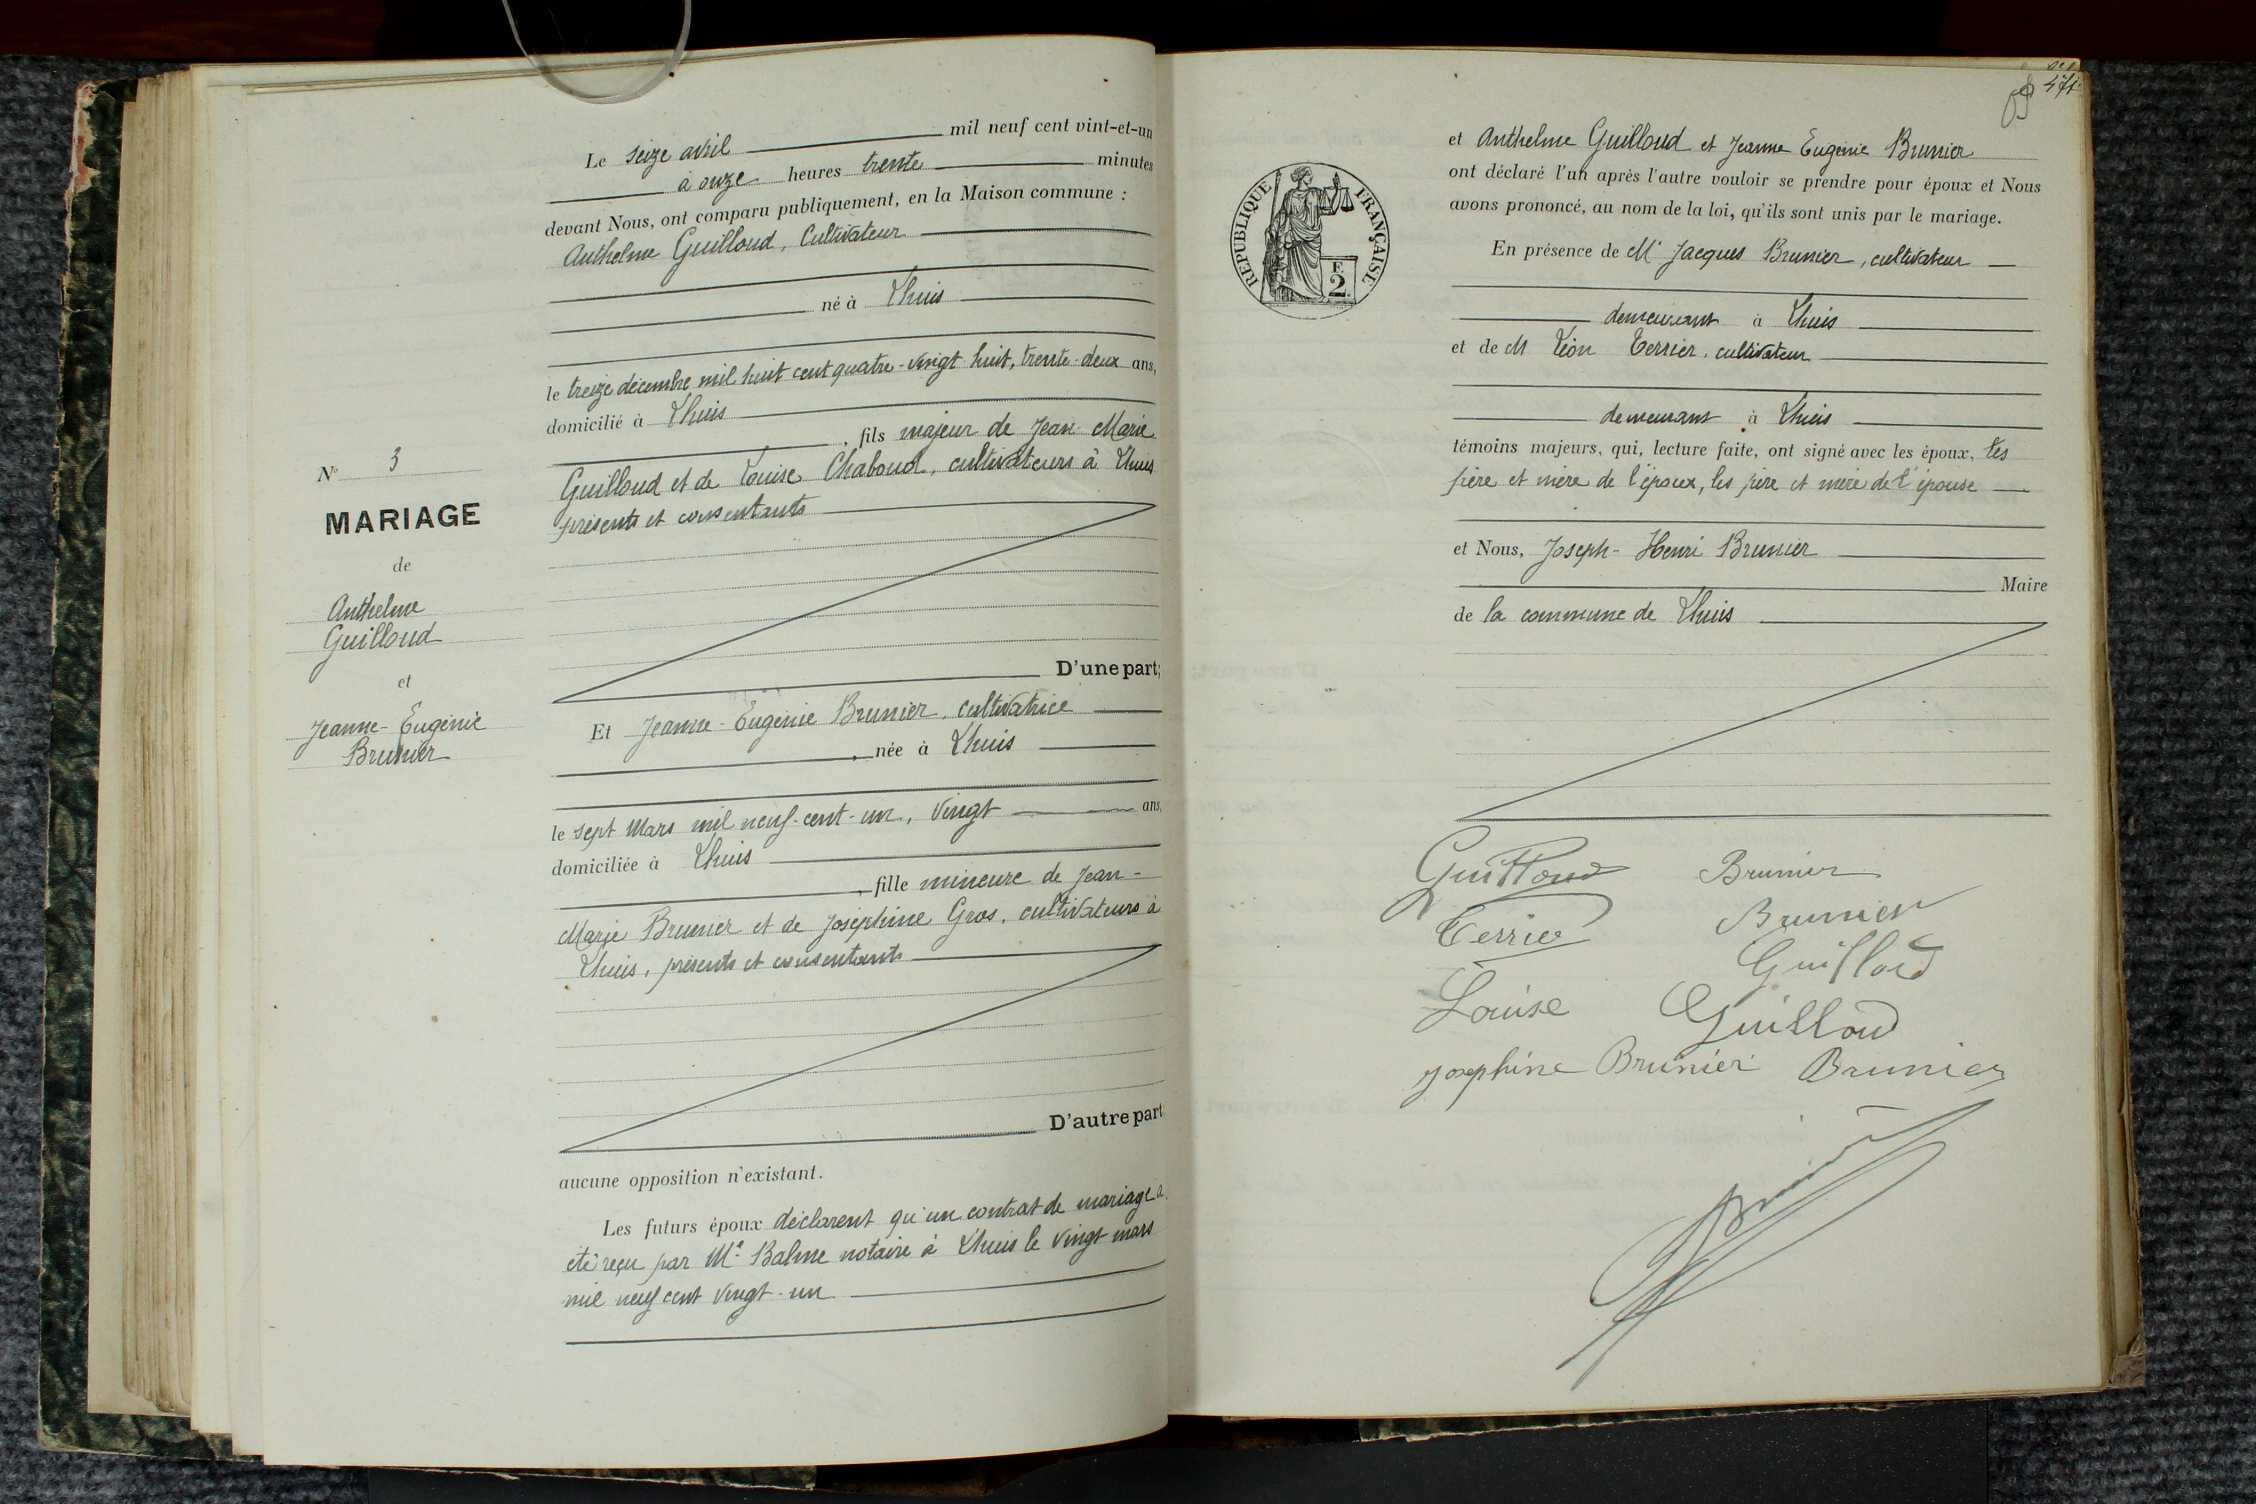 Le seize avril mil neuf cent vint-et-un
à onze heures trente minutes
devant Nous, ont comparu publiquement, en la Maison commune :
Anthelme Guilloud, Cultivateur
né à Lhuis
le treize décembre mil huit cent quatre-vingt huit, trente-deux ans,
domicilié à Lhuis
, fils majeur de Jean-Marie
Guilloud et de Louise Chaboud, cultivateurs à Lhuis
présents et consentants
N° 3
MARIAGE
de
Anthelme
Guilloud
et
Jeanne-Eugénie
Brunier
D'une part;
Et Jeanne-Eugénie Brunier, cultivatrice
, née à Lhuis
le sept Mars mil neuf-cent-un, vingt ans,
domiciliée à Lhuis
, fille mineure de Jean-
Marie Brunier et de Joséphine Gros, cultivateurs à
Lhuis, présents et consentants
D'autre part
aucune opposition n'existant.
Les futurs époux déclarent qu'un contrat de mariage a
été reçu par Me Balme notaire à Lhuis le vingt mars
mil neuf cent vingt-un
471
RÉPUBLIQUE FRANÇAISE
F.
2
et Anthelme Guilloud et Jeanne Eugénie Brunier
ont déclaré l'un après l'autre vouloir se prendre pour époux et Nous
avons prononcé, au nom de la loi, qu'ils sont unis par le mariage.
En présence de Mr Jacques Brunier, cultivateur
demeurant à Lhuis
et de M Léon Terrier, cultivateur
demeurant à Lhuis
témoins majeurs, qui, lecture faite, ont signé avec les époux, les
père et mère de l'époux, les père et mère de l'épouse
et Nous, Joseph-Henri Brunier
Maire
de la commune de Lhuis
Guilloud Brunier
Terrier Brunier
Guilloud
Louise Guilloud
Joséphine Brunier Brunier